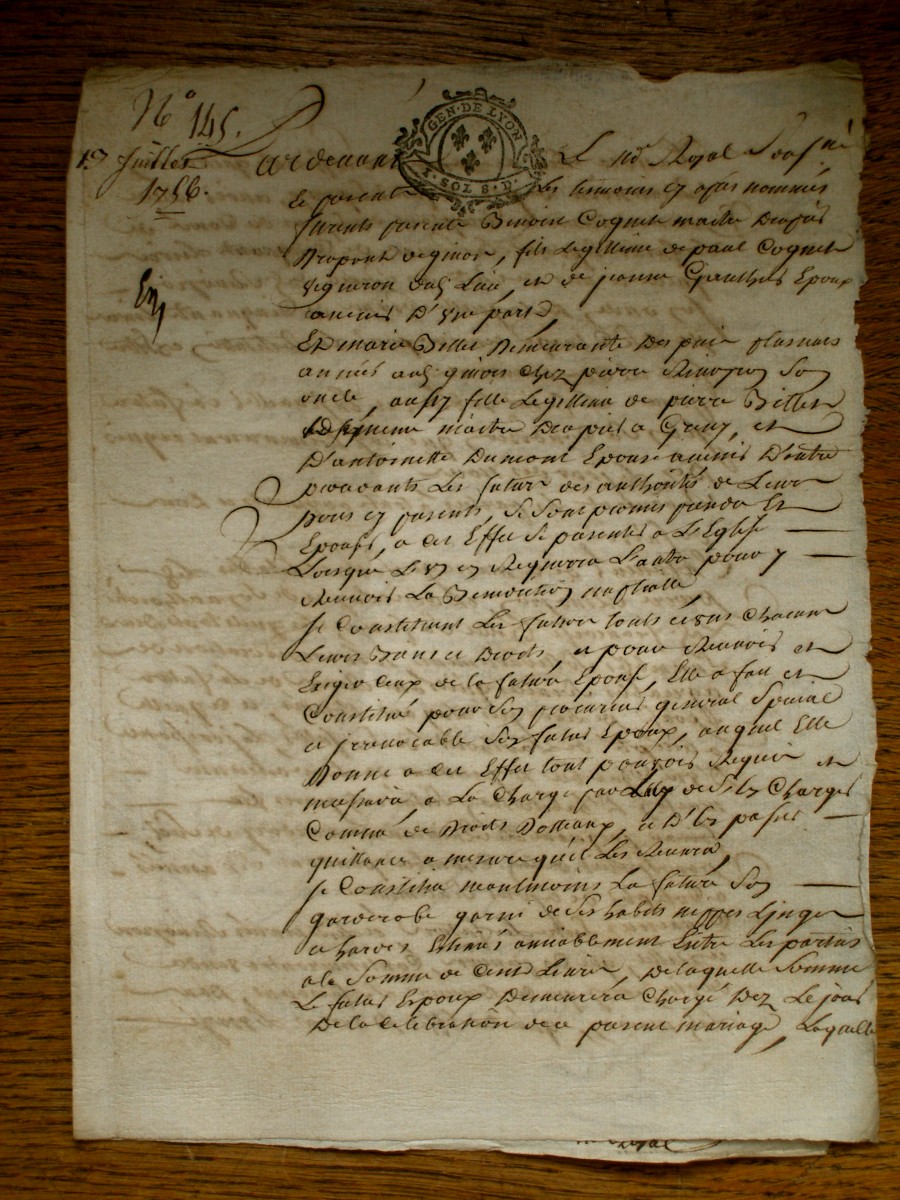 N° 145.
GEN. DE LYON
1. SOL 8. D.
17 Juillet
1756.
Pardevant Le nre Royal Soussné
et present Les temoins cy apres nommés
furents presents Benoist Coquet maitre
de givors, fils Legitime de paul Coquet
vigneron aud Lieu, et de jeanne Gauthier Epoux
d'une part,
Et marie Billet Demeurante Depuis plusieurs
années aud givors chez pierre son
oncle, aussy fille Legitime de pierre Billet
maitre a et
D'antoinette Dumont Epouse D'autre
Les futurs des authorités de Leur
parents, Se sont promis prendre En
Epoux, a cet Effet Se presenter a L'Eglise
Lorsque L'un en Requerra L'autre pour y
Recevoir La Benediction nuptialle,
Se Constituent Les futurs touts chacun
Leurs Biens et Droits, et pour Recevoir et
Exiger Ceux de la future Epouse, Elle a fait et
Constitué pour Son procureur general Special
et irrevocable Son futur Epoux, auquel Elle
Donne a cet Effet tout pouvoir Requis et
necessaire, a La Charge par Luy de S'en Charger
Comme de Droits Dotteaux, et D'en passer
quittance a mesure qu'il Les Recevra,
Se Constitue neantmoins La future Son
garderobe garni de Ses habits nippes Linges
et hardes Estimés amiablement Entre Les parties
a la Somme de Cent Livres, De laquelle Somme
Le futur Epoux Demeurera Chargé Dez Le jour
De la Celebration de ce present mariage, Laquelle